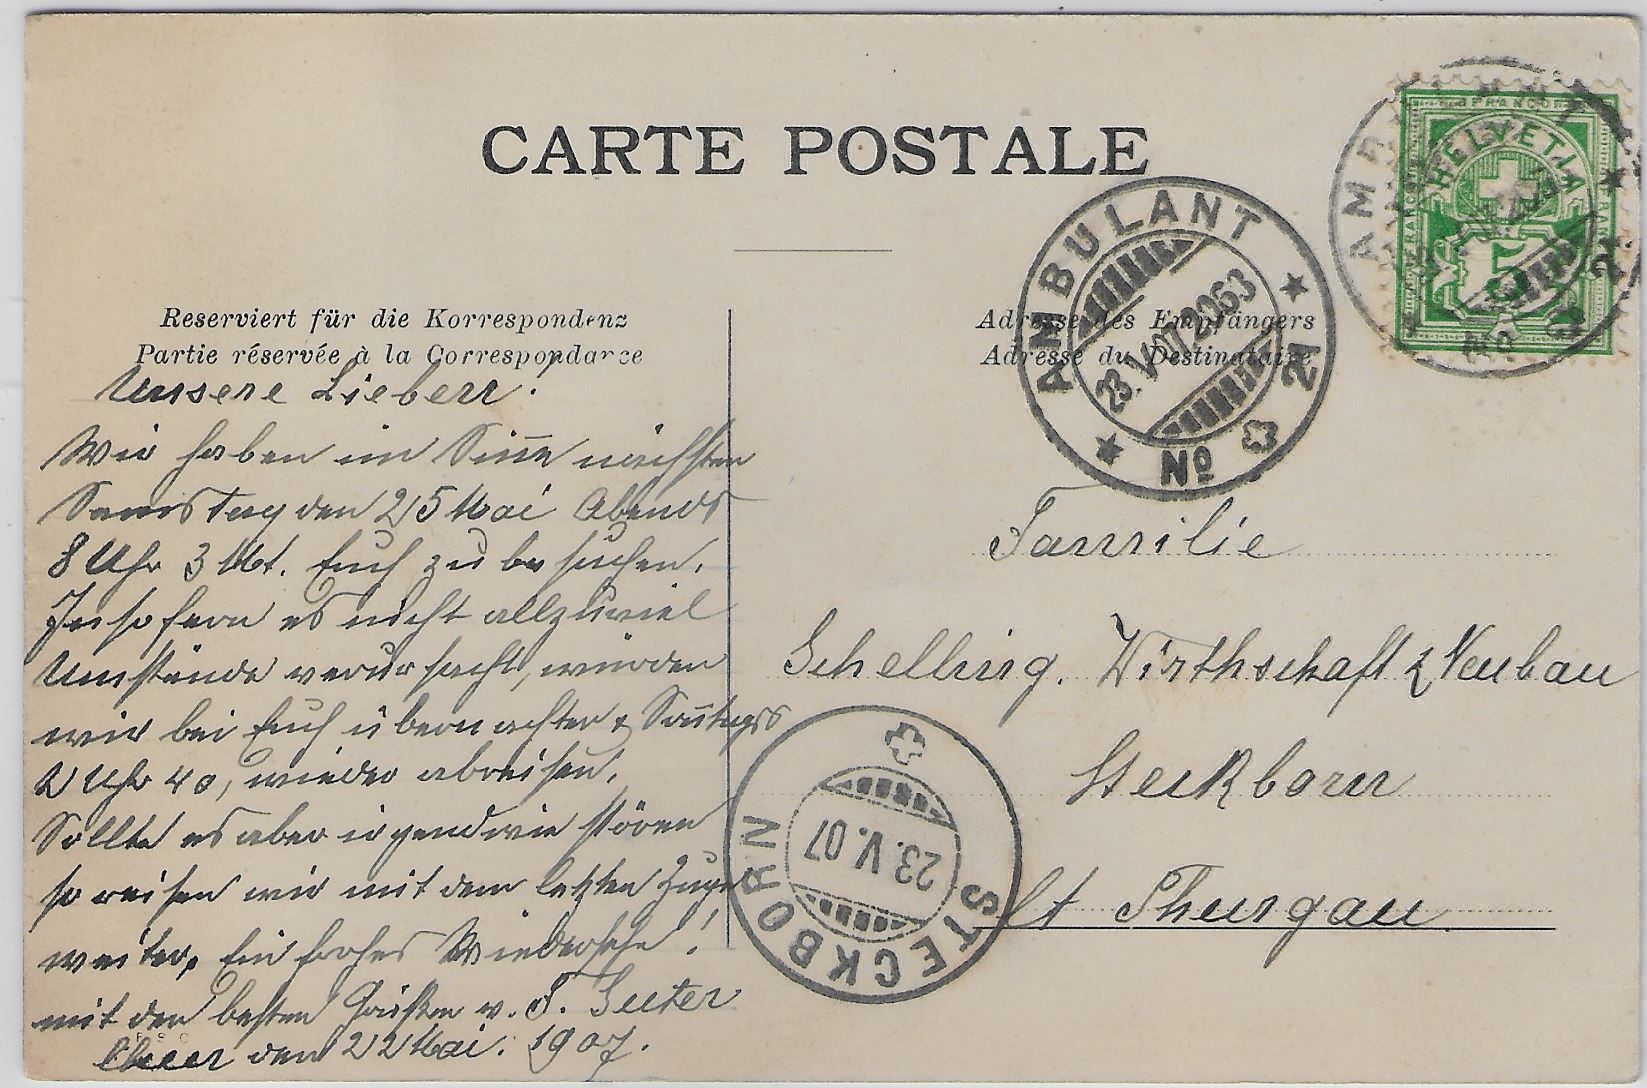 CARTE POSTALE
Reserviert für die Korrespondenz
Partie réservée à la Correspondance
Adresse des Empfängers
Adresse du Destinataire
FRANCO
HELVETIA
5
AMBULANT
23.V.07
No 21
Unsere Lieben!
Wir haben im Sinn nächsten
Samstag den 25 Mai Abends
8 Uhr 3 Mt. Euch zu besuchen.
In so fern es nicht allzuviel
Umstände verursacht, würden
wir bei Euch übernachten & Sontags
2 Uhr 40, wieder abreisen.
Sollte es aber irgendwie stören
so reisen wir mit dem letzten Zuge
weiter. Ein frohes Wiedersehn!
mit den besten Grüßen v. Suter
den 22 Mai. 1907.
Familie
Schelling. Wirthschaft z Neubau
Steckborn
Kt Thurgau
STECKBORN
23.V.07